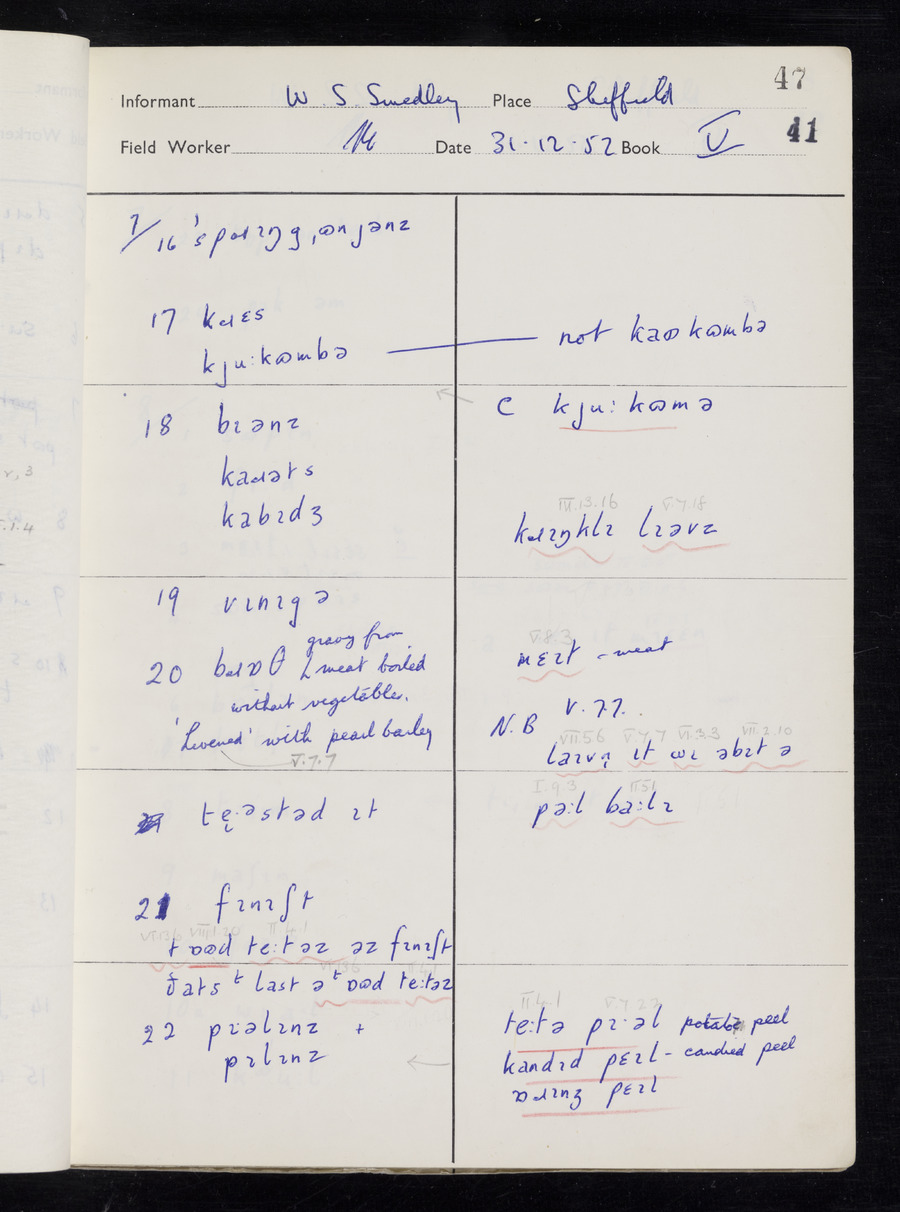 47
Informant W. S. Smedley Place Sheffield
Field Worker Date 31·12·52 Book V 41
7/16 ˈspɹɪŋ ˌɷnjənz
17 kɹɛs
kju:kɷmbə not kaɷkɷmbə
C kju:kɷmə
18 bɪənz
kaɹəts
kabɪdʒ
III.13.16 V.7.18
kɹɪŋklɪ lɪəvz
19 vɪnɪgə
20 bɹɒθ gravy from
meat boiled
without vegetables.
'Levened' with pearl barley
V.7.7
V.8.3
mɛɪt - meat
N.B V.7.7.
VII.5.6 V.7.7 VI.3.3 VII.2.10
laɪvn̩ ɪt wɪ əbɪt ə
I.9.3
pə:l ba:lɪ
te̞:əstəd ɪt
21 fɪnɪʃt
VIII.1.20 II.4.1
t ɒɷd te:təz əz fɪnɪʃt
ðats t last ə t ɒɷd te:təz
22 pɪ·əlɪnz +
pɪlɪnz
II.4.1 V.7.22
te:tə pɪ·əl potato peel
kandɪd pɛɪl - candied peel
ɒɹɪnʒ pɛɪl